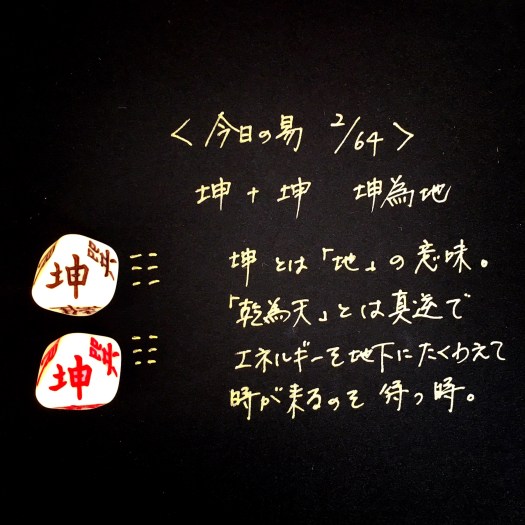 <今日の易 2/64>
坤+坤 坤為地
坤とは「地」の意味。
「乾為天」とは真逆で
エネルギーを地下にたくわえて
時が来るのを待つ時。
坤
坤